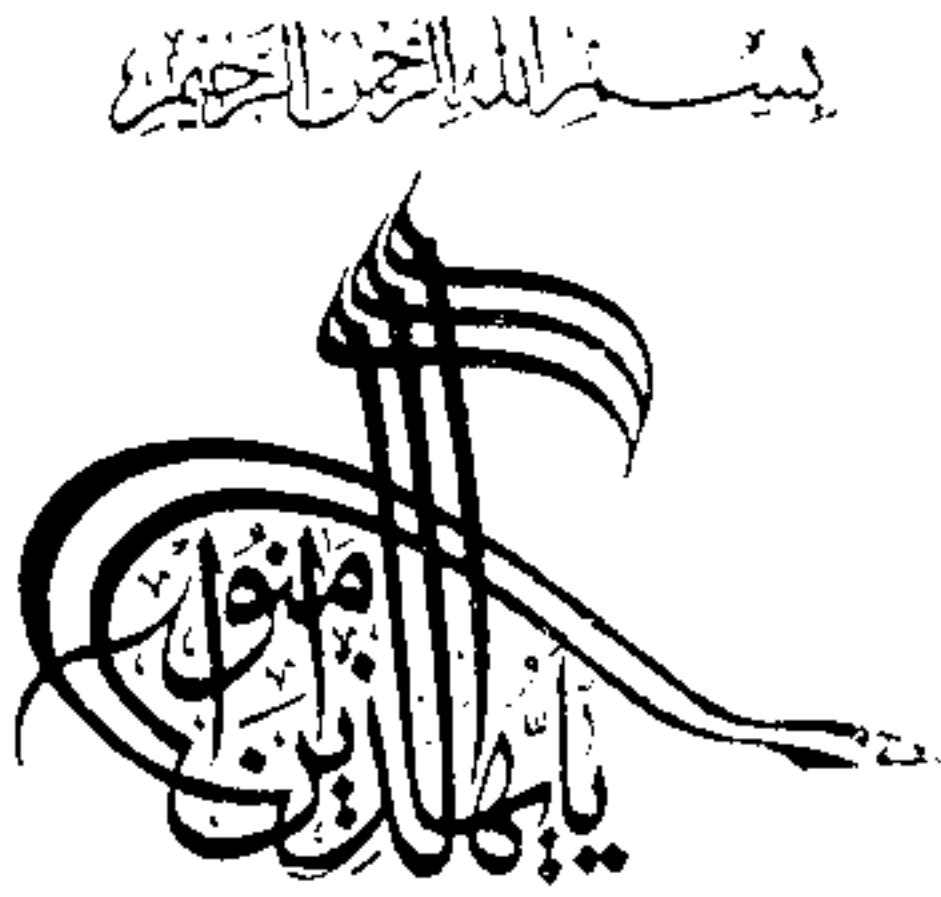 بسم الله الرحمن الرحيم
يا أيها الذين آمنوا